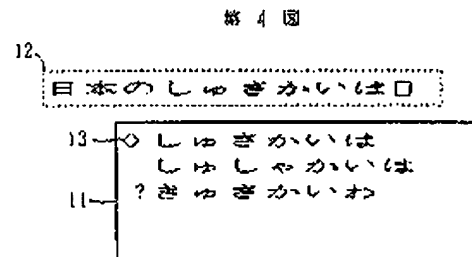 第4図
12
日本のしゅぎかいは□
13 ◇ しゅぎかいは
しゅしゃかいは
11 ?ぎゅぎかいわ